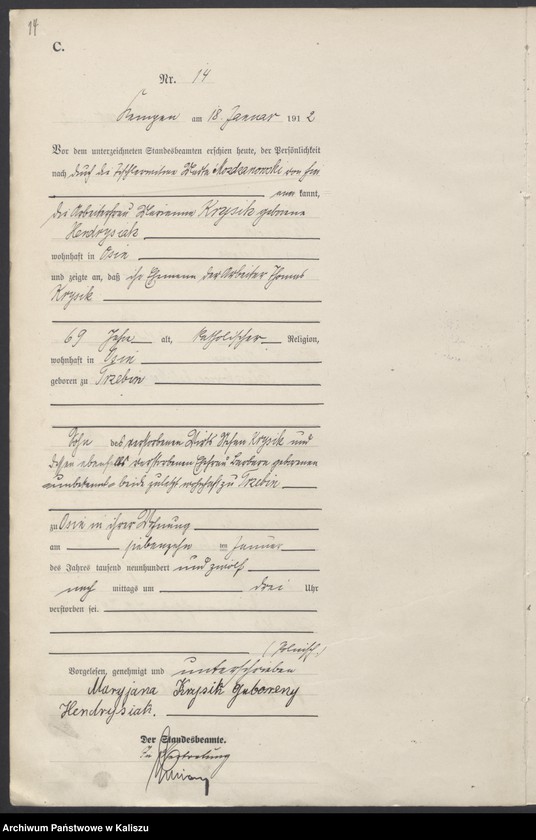 14
C.
Nr. 14
Kempen am 18. Januar 1912
Vor dem unterzeichneten Standesbeamten erschien heute, der Persönlichkeit
nach durch die Wirt Mozdzanowski von hier
kannt,
die Arbeiterfrau Marianna Krysik geborene
Hendrysiak
wohnhaft in Osin
und zeigte an, daß ihr Ehemann der Arbeiter Thomas
Krysik
69 Jahre alt, katholischer Religion,
wohnhaft in Osin
geboren zu Trzebin
Sohn des verstorbenen Wirts Krysik und
dessen ebenfalls verstorbenen Ehefrau Barbara geborenen
unbekannt beide zuletzt wohnhaft zu Trzebin
zu Osin in ihrer Wohnung
am siebenzehn ten Januar
des Jahres tausend neunhundert und zwölf
nach mittags um drei Uhr
verstorben sei.
(Polnisch)
Vorgelesen, genehmigt und unterschrieben
Maryjana Krysik geboreny
Hendrysiak.
Der Standesbeamte.
In Vertretung
Archiwum Państwowe w Kaliszu